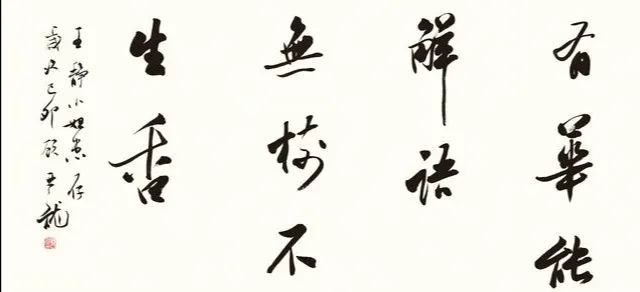 有華能
解語
無樹不
生香
王静小姐惠存
歲次己卯